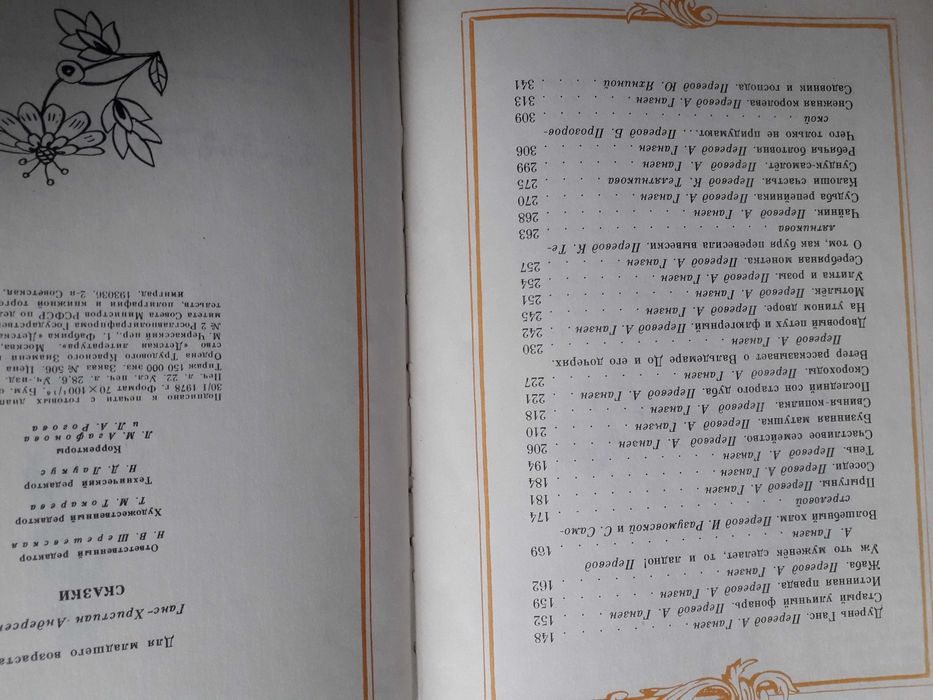 Дурень Ганс. Перевод А. Ганзен . . . . . . 148
Старый уличный фонарь. Перевод А. Ганзен . . 152
Истинная правда. Перевод А. Ганзен . . . . . 159
Жаба. Перевод А. Ганзен . . . . . . . . 162
Уж что муженёк сделает, то и ладно! Перевод
А. Ганзен . . . . . . . . . . . . . . 169
Волшебный холм. Перевод И. Разумовской и С. Само-
стреловой . . . . . . . . . . . . . . 174
Прыгуны. Перевод А. Ганзен . . . . . . . 181
Соседи. Перевод А. Ганзен . . . . . . . . 184
Тень. Перевод А. Ганзен . . . . . . . . . 194
Счастливое семейство. Перевод А. Ганзен . . . 206
Бузинная матушка. Перевод А. Ганзен . . . . 210
Свинья-копилка. Перевод А. Ганзен . . . . . 218
Последний сон старого дуба. Перевод А. Ганзен . 221
Скороходы. Перевод А. Ганзен . . . . . . . 227
Ветер рассказывает о Вальдемаре До и его дочерях.
Перевод А. Ганзен . . . . . . . . . . . 230
Дворовый петух и флюгерный. Перевод А. Ганзен . 242
На утином дворе. Перевод А. Ганзен . . . . . 245
Мотылёк. Перевод А. Ганзен . . . . . . . 251
Улитка и розы. Перевод А. Ганзен . . . . . 254
Серебряная монетка. Перевод А. Ганзен . . . . 257
О том, как буря перевесила вывески. Перевод К. Те-
лятникова . . . . . . . . . . . . . . 263
Чайник. Перевод А. Ганзен . . . . . . . . 268
Судьба репейника. Перевод А. Ганзен . . . . . 270
Калоши счастья. Перевод К. Телятникова . . . 275
Сундук-самолёт. Перевод А. Ганзен . . . . . 299
Ребячья болтовня. Перевод А. Ганзен . . . . . 306
Чего только не придумают... Перевод Б. Прозоров-
ской . . . . . . . . . . . . . . . . 309
Снежная королева. Перевод А. Ганзен . . . . 313
Садовник и господа. Перевод Ю. Яхниной . . . . 341
Для младшего возраста
Ганс-Христиан Андерсен
СКАЗКИ
Ответственный редактор
Н. В. Шерешевская
Художественный редактор
Т. М. Токарева
Технический редактор
Н. Д. Лаукус
Корректоры
Л. М. Агафонова
и Л. А. Рогова
Подписано к печати с готовых
30/I 1978 г. Формат 70×100¹/₁₆. Бум.
Печ. л. 22. Усл. печ. л. 28,6. Уч.-изд.
Тираж 150 000 экз. Заказ № 506. Цена
Ордена Трудового Красного Знамени
ство «Детская литература». Москва,
М. Черкасский пер., 1. Фабрика «Детская
№ 2 Росглавполиграфпрома Государственного
митета Совета Министров РСФСР по делам
тельств, полиграфии и книжной торговли
нинград, 193036, 2-я Советская,